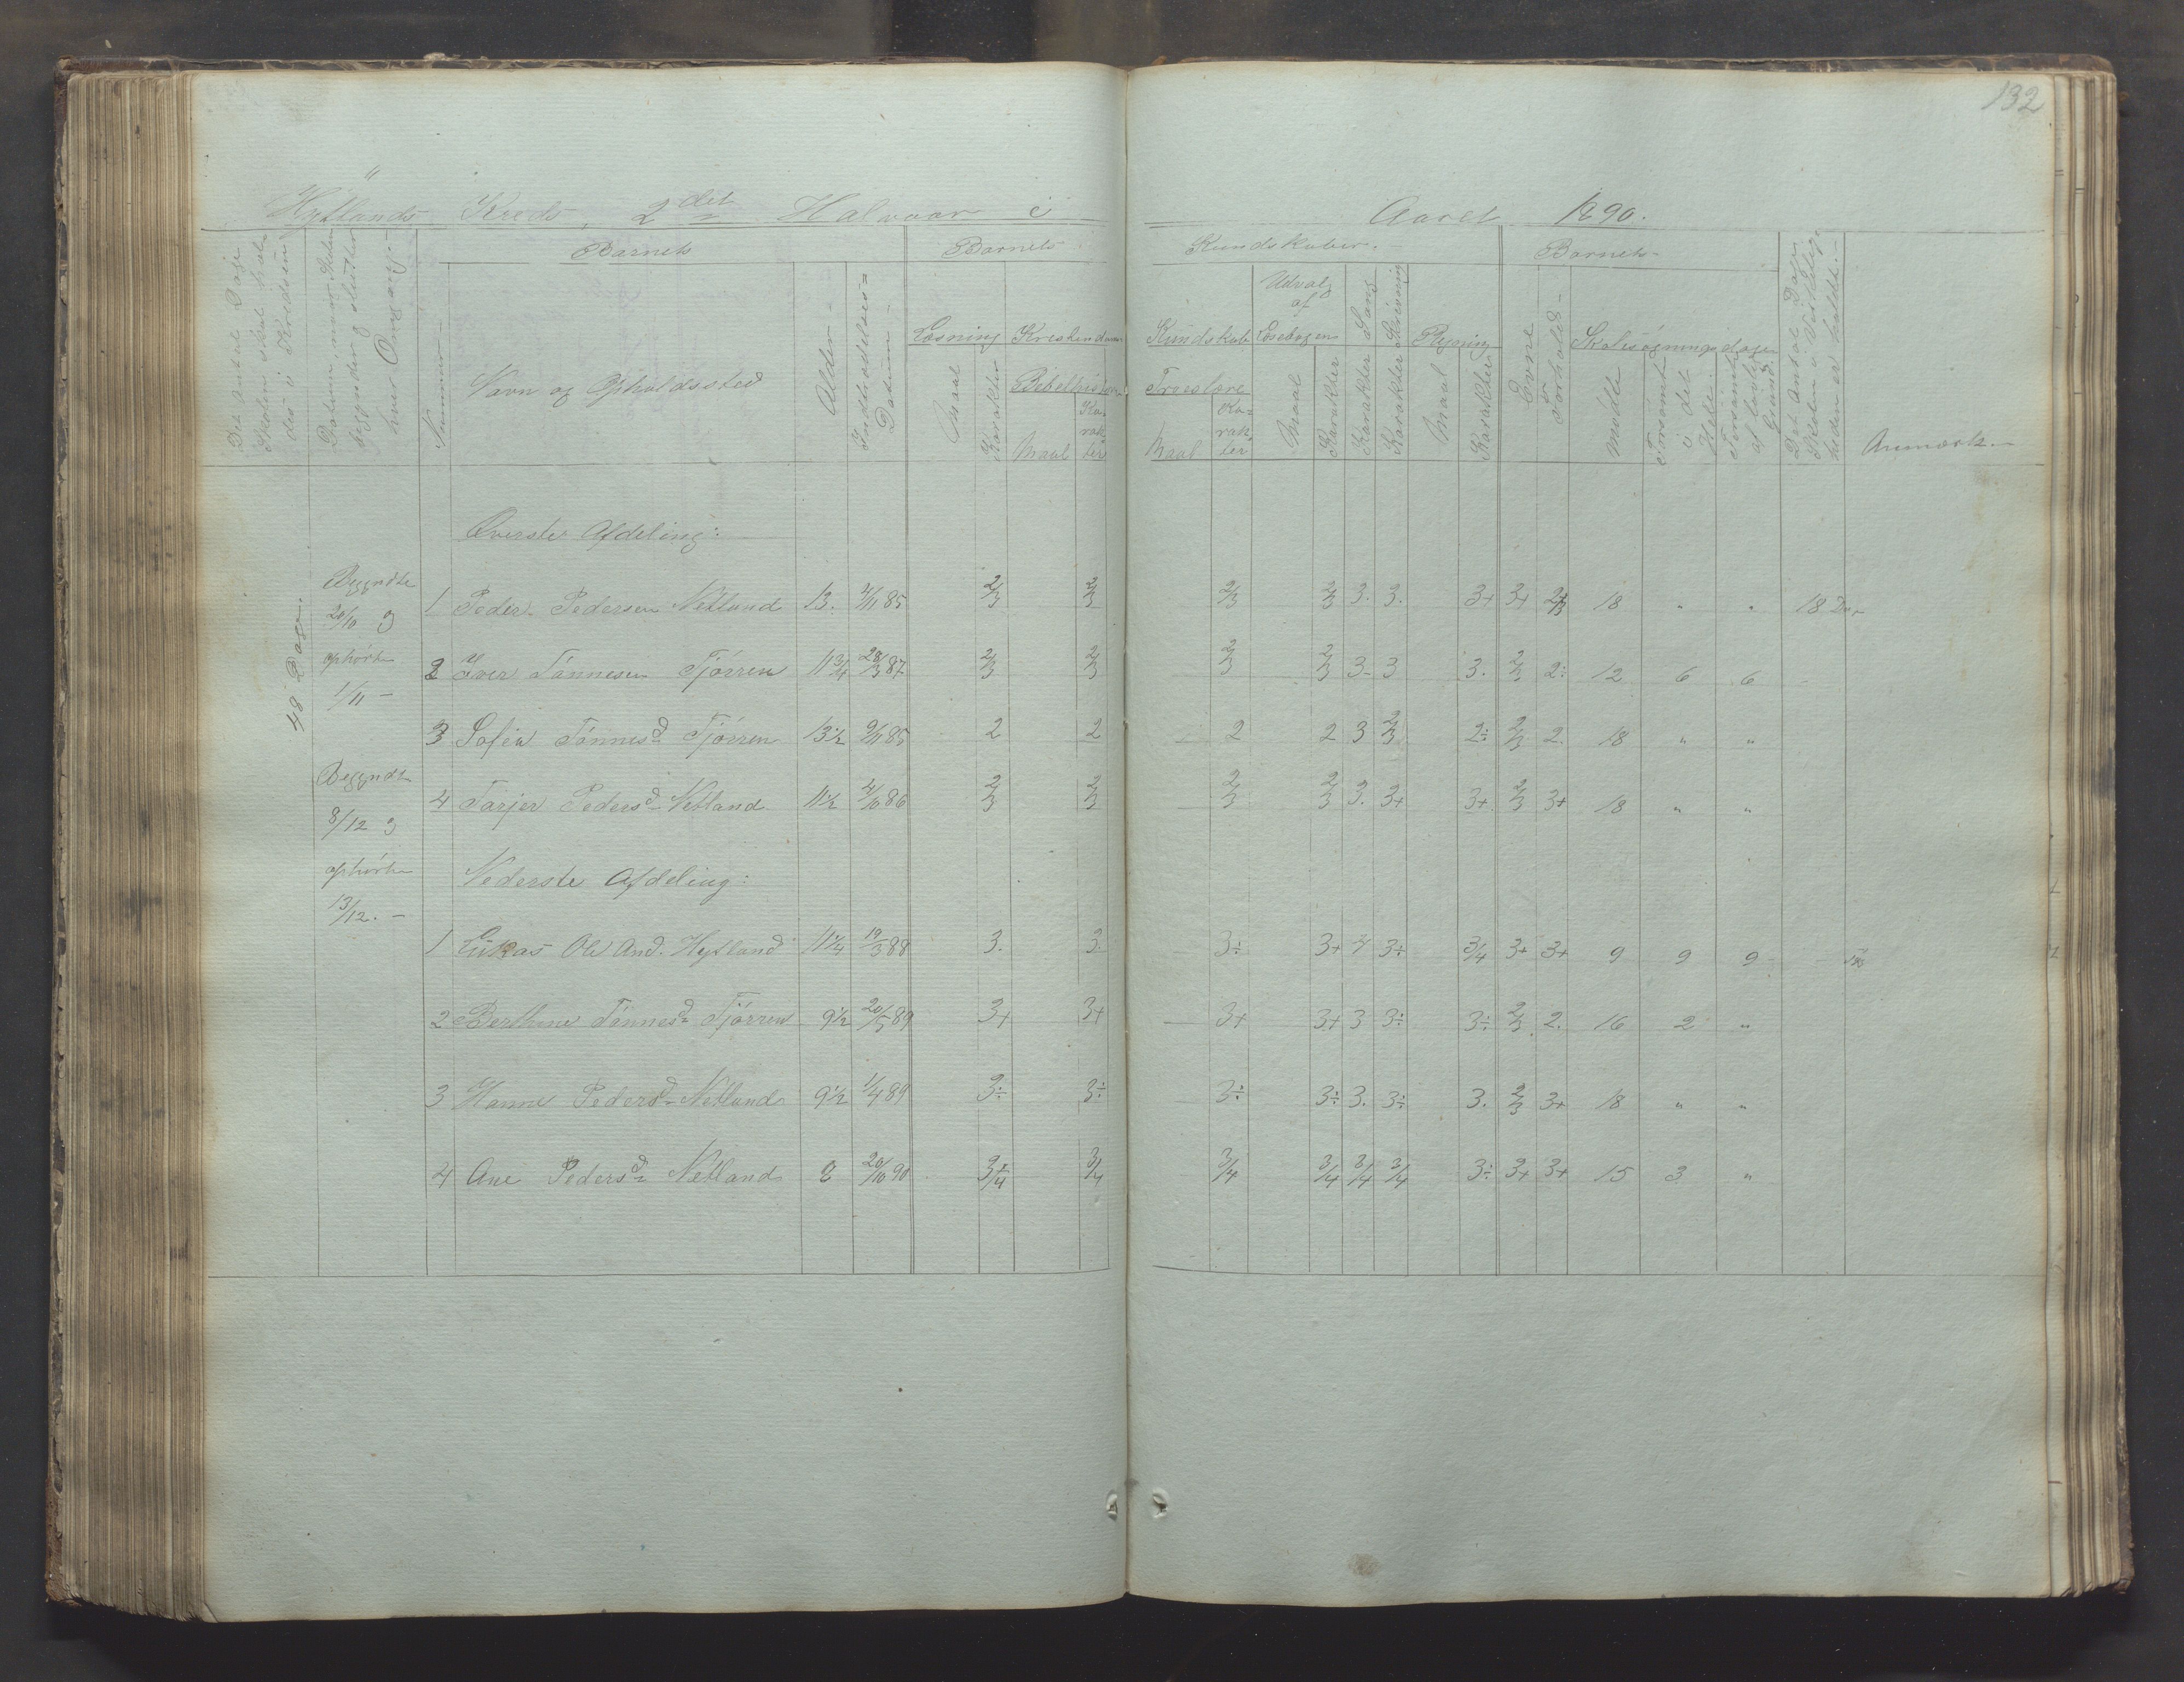 132
Hytlands Kreds, 2det Halvaar i Aaret 1890.
Det Antal Dage Skolen skal holdes i Kredsen
Datum, naar Skolen begynder og slutter hver Omgang
Nummer
Barnets
Navn og Opholdssted
Alder
Indtrædelses-Datum
Barnets Kundskaber.
Læsning
Maal
Karakter
Kristendoms Kundskab
Bibelhistorie
Maal
Karakter
Troeslære
Maal
Karakter
Udvalg af Læsebogen
Maal
Karakter
Sang
Karakter
Skrivning
Karakter
Regning
Maal
Karakter
Barnets
Evne
Forhold
Skolesøgningsdage
Mødte
Forsømt i det Hele
Forsømt af lovlig Grund
Det Antal Dage Skolen i Virkeligheden er holdt.
Anmærk.
48 Dage.
Begyndte
20/10 og
ophørte
1/11 -
Begyndt
8/12 og
ophørte
13/12. -
Øverste Afdeling:
1 Peder Pedersen Netland 13. 4/11 85 2/3 2/3 2/3 2/3 3. 3. 3+ 3+ 2/3 18 " " 18 Dage
2 Iver Tönnesen Tjörren 11 3/4 28/3 87 2/3 2/3 2/3 2/3 3 3 3. 2/3 2÷ 12 6 6 -
3 Sofie Tönnesd Tjörren 13 1/2 9/11 85 2 2 2 2 3 2/3 2÷ 2/3 2. 18 " "
4 Tarjer Pedersd Netland 11 1/2 4/10 86 2/3 2/3 2/3 2/3 3. 3+ 3+ 2/3 3+ 18 " "
Nederste Afdeling:
1 Lukas Ole And. Hytland 11 1/4 19/3 88 3. 3. 3÷ 3+ 4 3÷ 3/4 3+ 3+ 9 9 9
2 Berthine Tönnesd Tjörren 9 1/2 20/5 89 3+ 3+ 3+ 3+ 3 3÷ 3÷ 2/3 2. 16 2 "
3 Hanne Pedersd Netland 9 1/2 1/4 89 3÷ 3÷ 3÷ 3÷ 3. 3÷ 3. 2/3 3+ 18 " "
4 Ane Pedersd Netland 8 20/10 90 3/4 3/4 3/4 3/4 3/4 3/4 3÷ 3+ 3+ 15 3 "